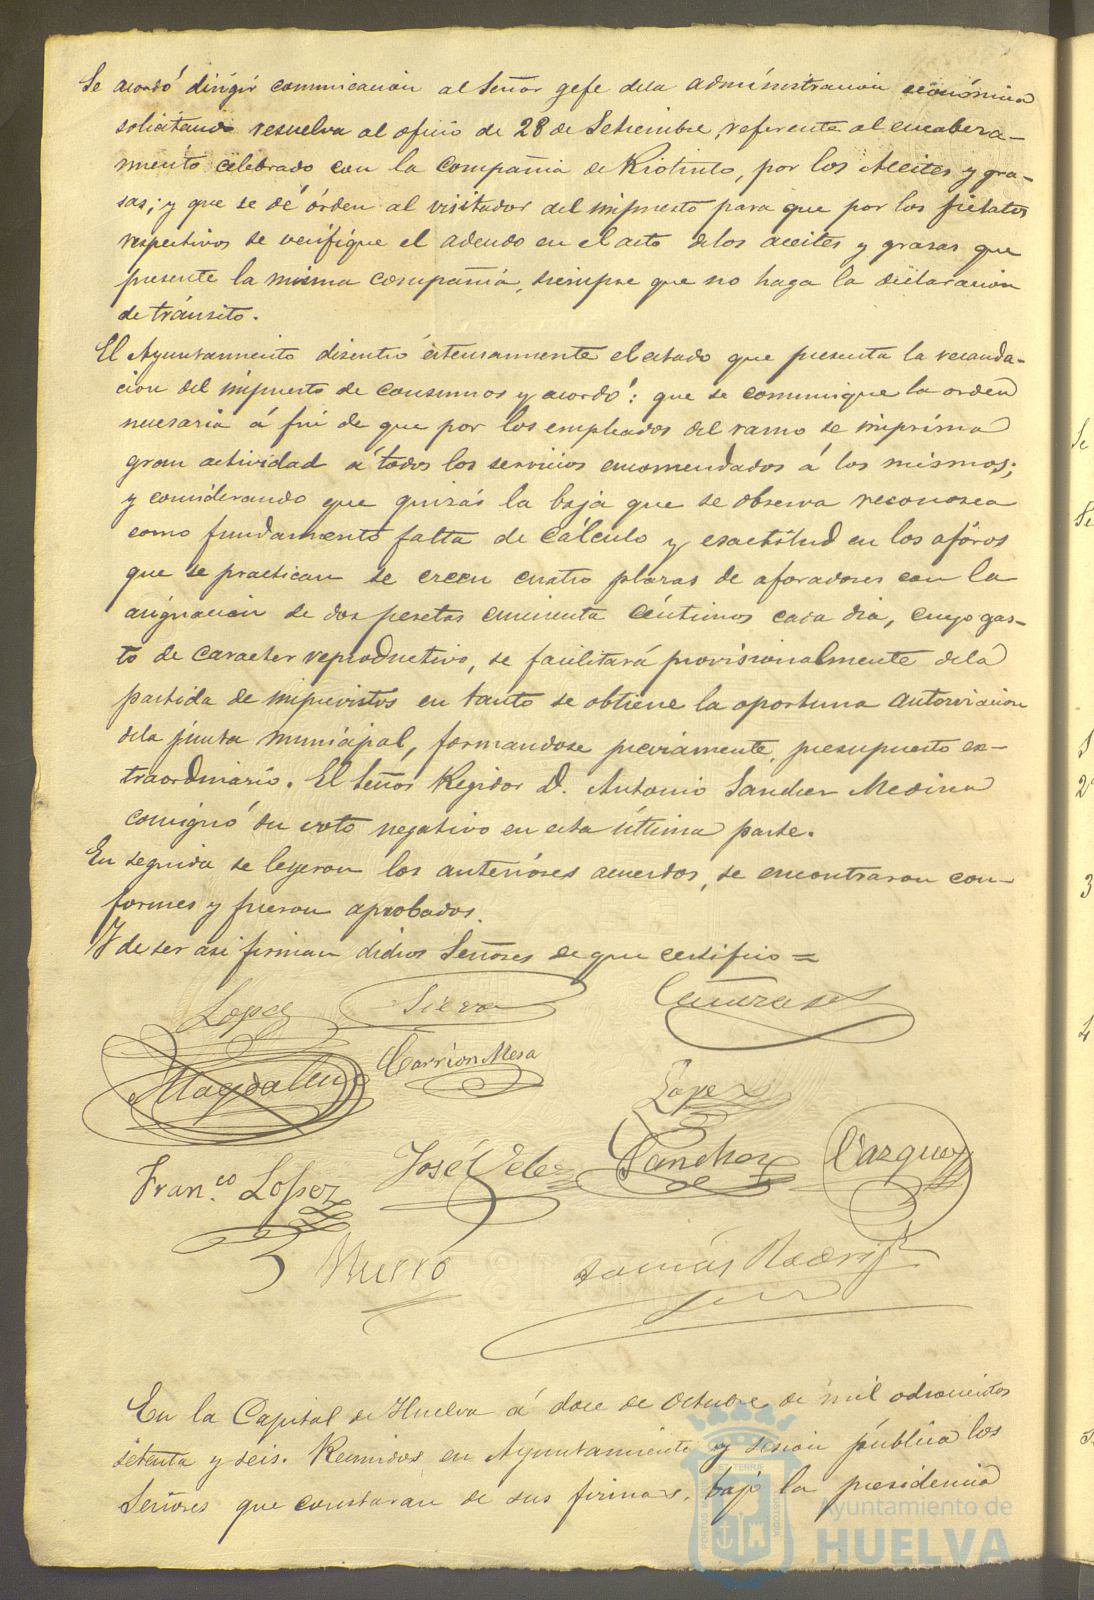 Se acordó dirigir comunicacion al Señor gefe dela administracion económica
solicitando resuelva al oficio de 28 de Setiembre referente al encabeza-
miento celebrado con la Compañia de Riotinto, por los Aceites y gra-
sas; y que se dé órden al visitador del impuesto para que por los fielatos
respectivos se verifique el adeudo en el acto delos aceites y grasas que
presente la misma compañiá, siempre que no haga la declaracion
de tránsito.
El Ayuntamiento discutió estensamente el estado que presenta la recauda-
cion del impuesto de consumos y acordó: que se comunique la orden
necesaria á fin de que por los empleados del ramo se imprima
gran actividad á todos los servicios encomendados á los mismos;
y considerando que quizás la baja que se observa reconosca
como fundamento falta de cálculo y esactitud en los aforos
que se practican se creen cuatro plazas de aforadores con la
asignacion de dos pesetas cincuenta céntimos cada dia, cuyo gas-
to de caracter reproductivo, se facilitará provisionalmente dela
partida de imprevistos en tanto se obtiene la oportuna autorizacion
dela junta municipal, formandose previamente presupuesto ex-
traordinario. El Señor Regidor D. Antonio Sanchez Medina
consignó su voto negativo en esta última parte.
En seguida se leyeron los anteriores acuerdos, se encontraron con-
formes y fueron aprobados.
Y de ser asi firman dichos Señores de que certifico =
Lopez Sierra
Magdalena Carrion Mesa
Lopez
Fran.co Lopez José Velez Sanchez Vazquez
Tomás Rodrig.
En la Capital de Huelva á doce de Octubre de mil ochocientos
setenta y seis. Reunidos en Ayuntamiento y sesion pública los
Señores que constaran de sus firmas, bajo la presidencia
Ayuntamiento de
HUELVA